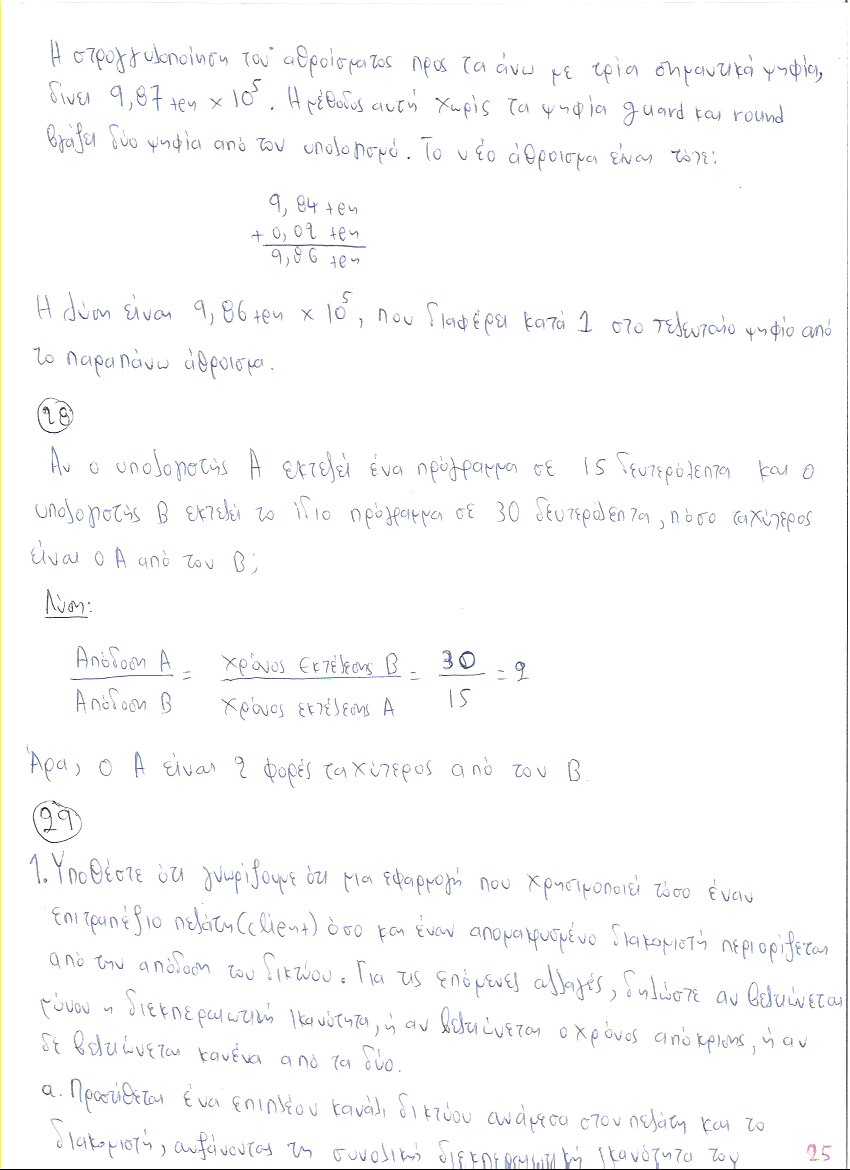 Η στρογγυλοποίηση του αθροίσματος προς τα άνω με τρία σημαντικά ψηφία,
δίνει 9,87 ten × 10⁵. Η μέθοδος αυτή χωρίς τα ψηφία guard και round
βγάζει δύο ψηφία από τον υπολογισμό. Το νέο άθροισμα είναι τότε:
9,84 ten
+ 0,02 ten
9,86 ten
Η λύση είναι 9,86 ten × 10⁵, που διαφέρει κατά 1 στο τελευταίο ψηφίο από
το παραπάνω άθροισμα.
28
Αν ο υπολογιστής Α εκτελεί ένα πρόγραμμα σε 15 δευτερόλεπτα και ο
υπολογιστής Β εκτελεί το ίδιο πρόγραμμα σε 30 δευτερόλεπτα, πόσο ταχύτερος
είναι ο Α από τον Β;
Λύση:
Απόδοση Α / Απόδοση Β = χρόνος εκτέλεσης Β / χρόνος εκτέλεσης Α = 30 / 15 = 2
Άρα, ο Α είναι 2 φορές ταχύτερος από τον Β.
29
1. Υποθέστε ότι γνωρίζουμε ότι μια εφαρμογή που χρησιμοποιεί τόσο έναν
επιτραπέζιο πελάτη (client) όσο και έναν απομακρυσμένο διακομιστή περιορίζεται
από την απόδοση του δικτύου. Για τις επόμενες αλλαγές, δηλώστε αν βελτιώνεται
μόνον η διεκπεραιωτική ικανότητα, ή αν βελτιώνεται ο χρόνος απόκρισης, ή αν
δε βελτιώνεται κανένα από τα δύο.
α. Προστίθεται ένα επιπλέον κανάλι δικτύου ανάμεσα στον πελάτη και το
διακομιστή, αυξάνοντας τη συνολική διεκπεραιωτική ικανότητα του
25